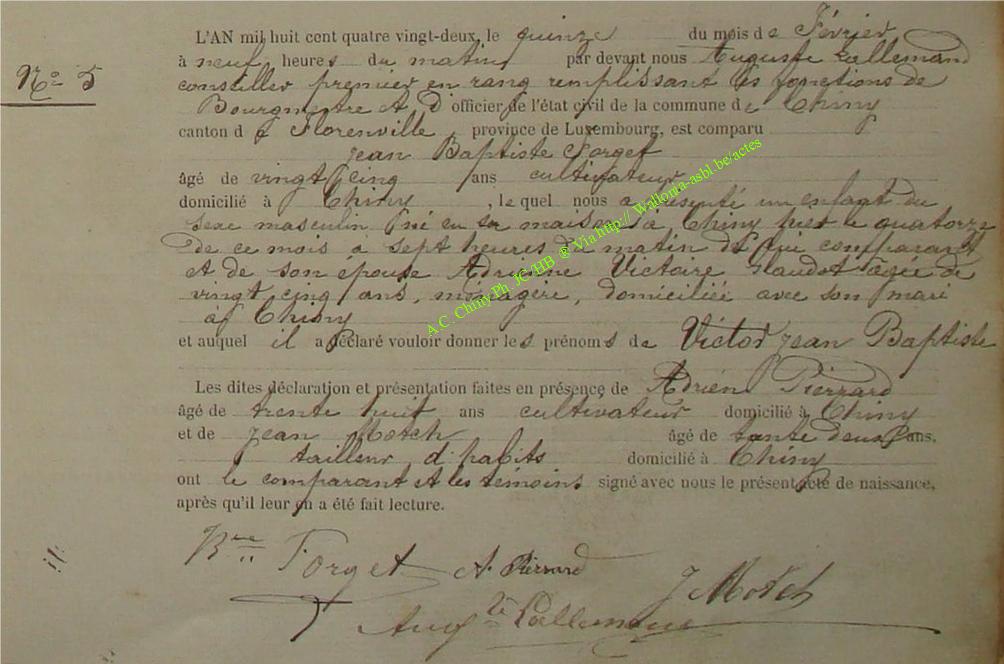 L'AN mil huit cent quatre vingt-deux, le quinze du mois de Février
à neuf heures du matin par devant nous Auguste Lallemand
N° 5
conseiller premier en rang remplissant les fonctions de
Bourgmestre et d'officier de l'état civil de la commune de Chiny
canton de Florenville, province de Luxembourg, est comparu
Jean Baptiste Forget
âgé de vingt cinq ans cultivateur
domicilié à Chiny, le quel nous a présenté un enfant du
sexe masculin né en sa maison à Chiny hier le quatorze
de ce mois à sept heures du matin de lui comparant
et de son épouse Adrienne Victoire Claudot âgée de
vingt cinq ans, ménagère, domiciliée avec son mari
à Chiny
et auquel il a déclaré vouloir donner les prénoms de Victor Jean Baptiste
Les dites déclaration et présentation faites en présence de Adrien Pierrard
âgé de trente huit ans cultivateur domicilié à Chiny
et de Jean Motch âgé de deux ans,
tailleur d'habits domicilié à Chiny
ont le comparant et les témoins signé avec nous le présent acte de naissance,
après qu'il leur en a été fait lecture.
Bte Forget A. Pierrard J Motch
Aug te Lallemand
A.C. Chiny Ph. JC HB @ Via http:// Wallonia-asbl.be/actes